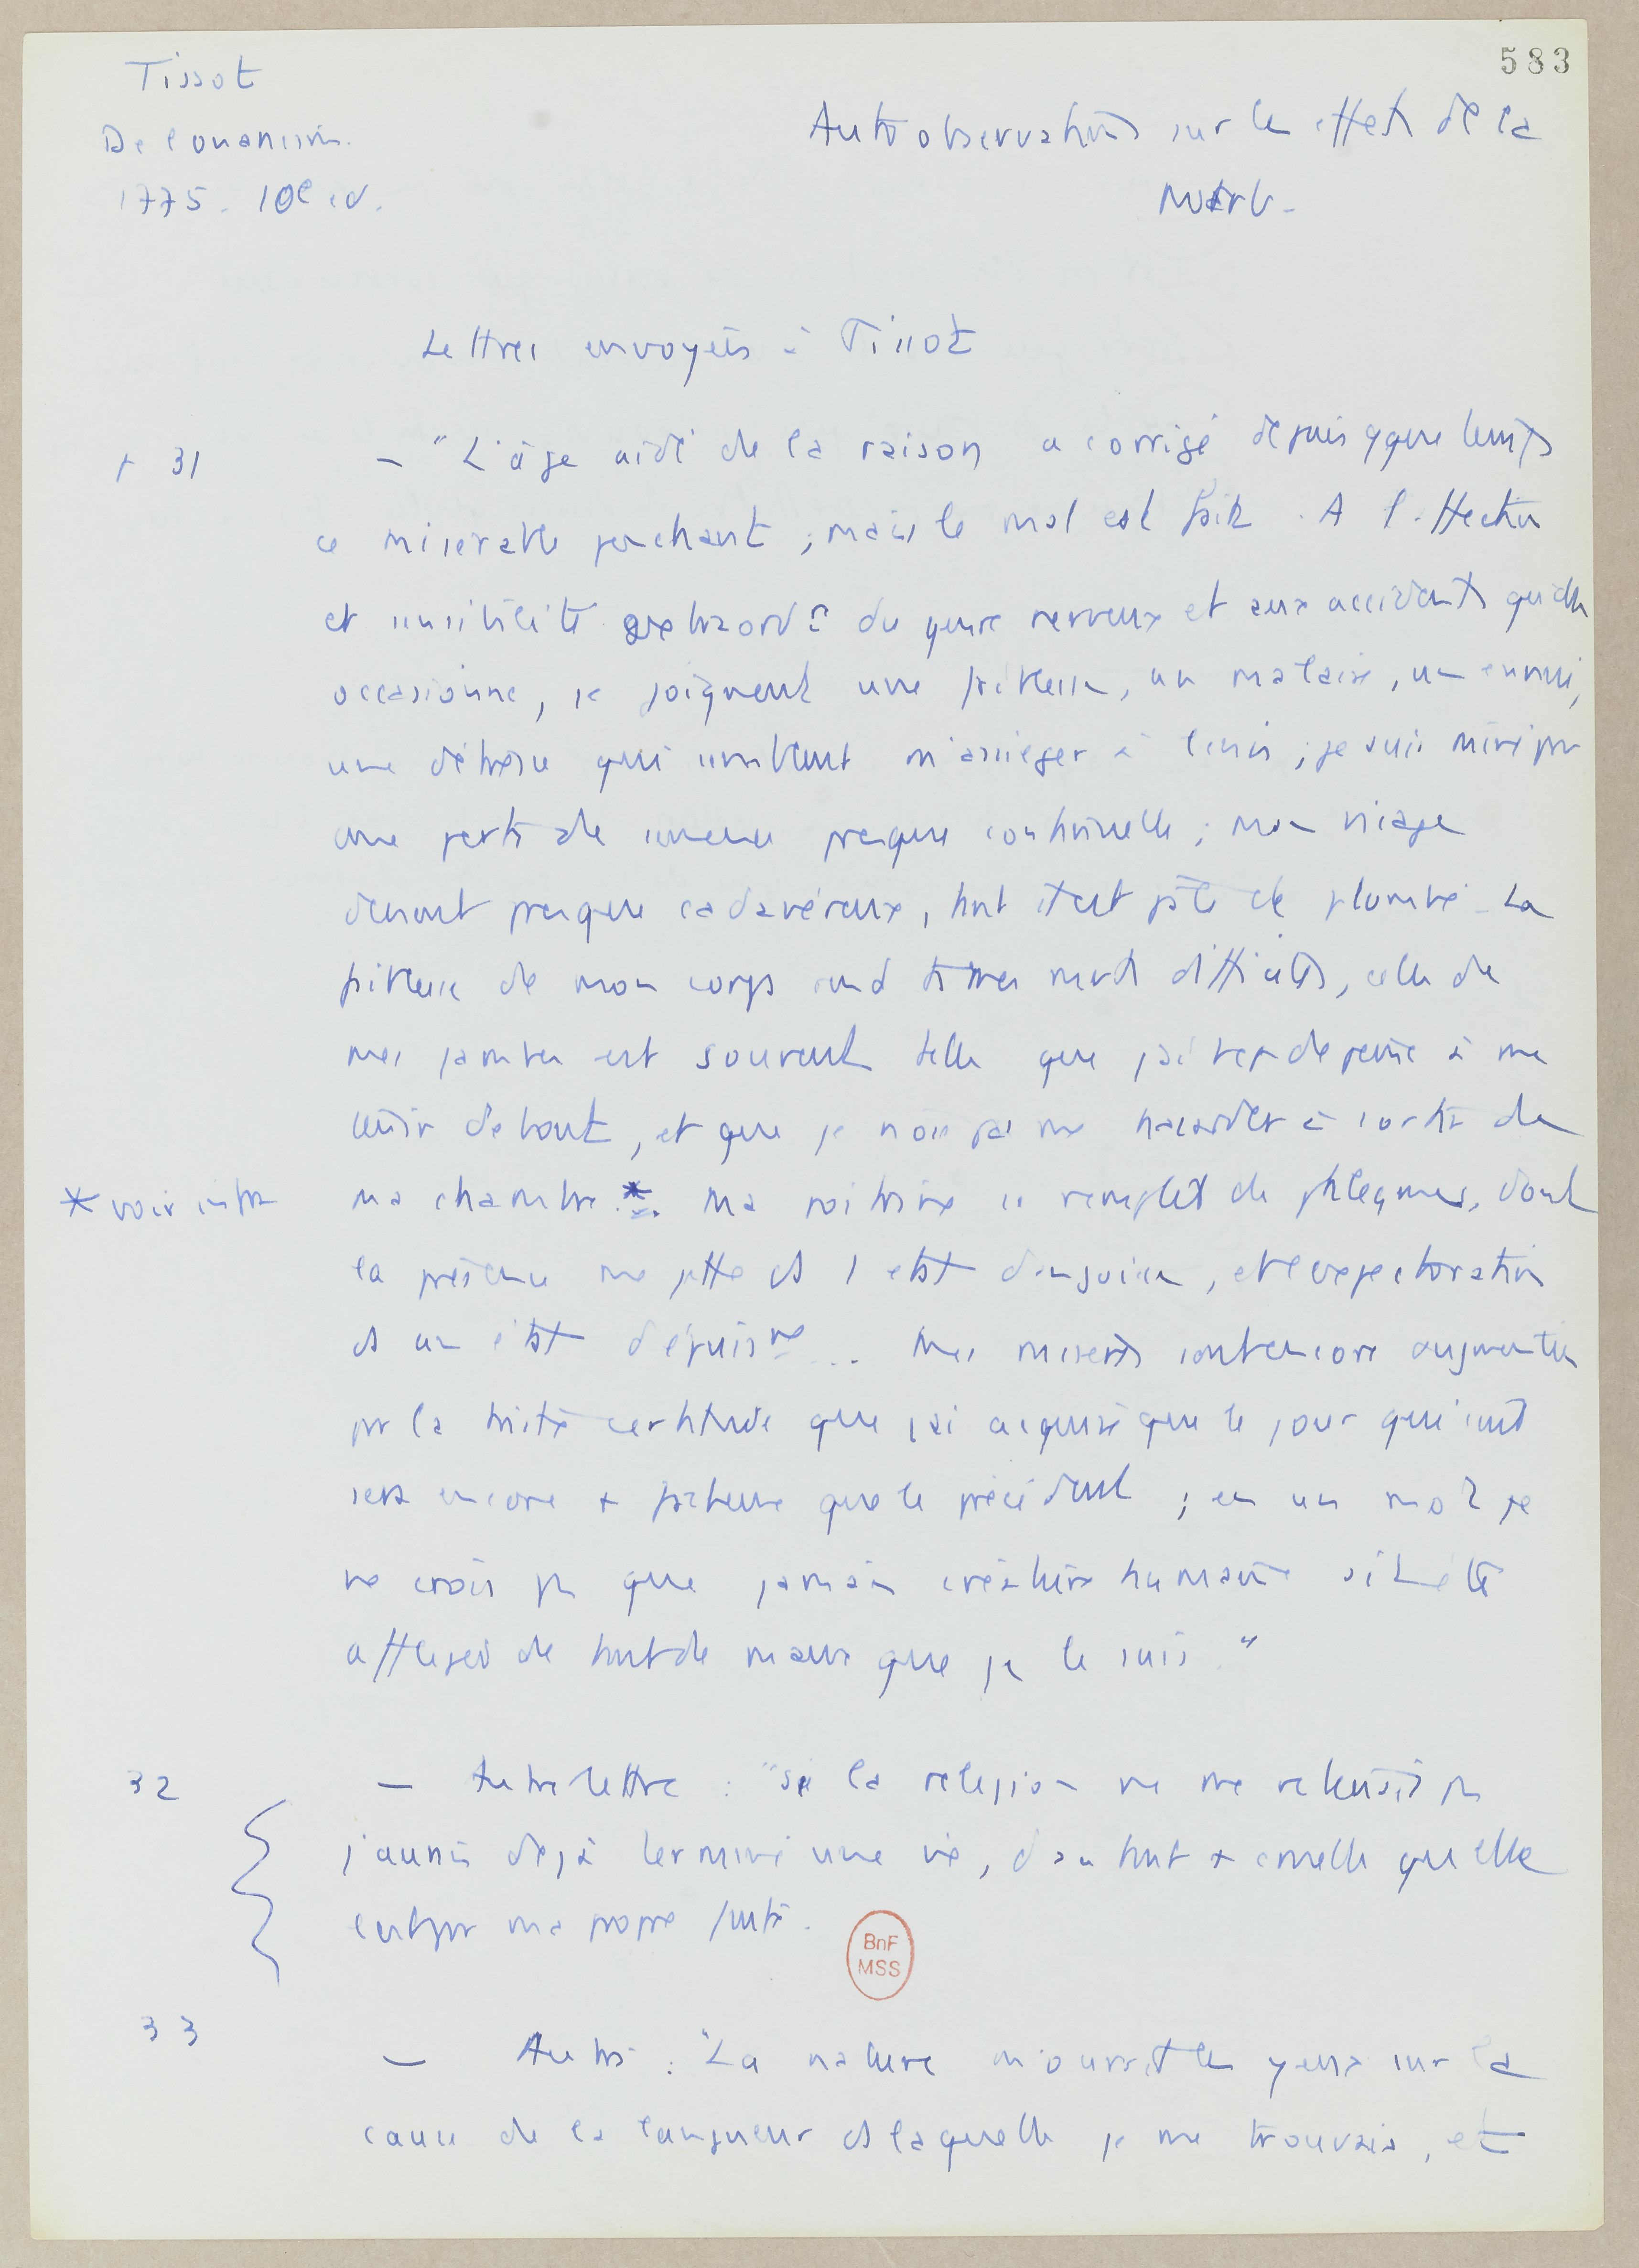 583
Tissot
De l'onanisme.
1775. 10e éd.
Autoobservations sur les effets de la
Mast.
Lettres envoyées à Tissot
+ 31
– "L'âge aidé de la raison a corrigé depuis qque temps
ce misérable penchant ; mais le mal est fait. A l'affection
et sensibilité extraordre du genre nerveux et aux accidents qu'elle
occasionne, se joignent une faiblesse, un malaise, un ennui,
une détresse qui semblent m'assiéger à l'envi ; je suis miné par
une perte de semence presque continuelle ; mon visage
devient presque cadavéreux, tant il est pâle et plombé. La
faiblesse de mon corps rend ts mes mvts difficiles, celle de
mes jambes est souvent telle que j'ai bcp de peine à me
tenir debout, et que je n'ose pas me hasarder à sortir de
* voir infra
ma chambre.* Ma poitrine se remplit de phlegmes, dont
la présence me jette ds l'état d'angoisse, et l'expectoration
ds un état d'épuismt... Mes misères sont encore augmentées
par la triste certitude que j'ai acquise que le jour qui suit
sera encore + fâcheux que le précédent ; en un mot je
ne crois pas que jamais créature humaine ait été
affligée de tant de maux que je le suis."
32
– Autre lettre : "si la religion ne me retenait pas
j'aurais déjà terminé une vie, d'autant + cruelle qu'elle
l'est par ma propre faute.
BnF
MSS
33
– Autre : "La nature m'ouvrit les yeux sur la
cause de la langueur ds laquelle je me trouvais, et